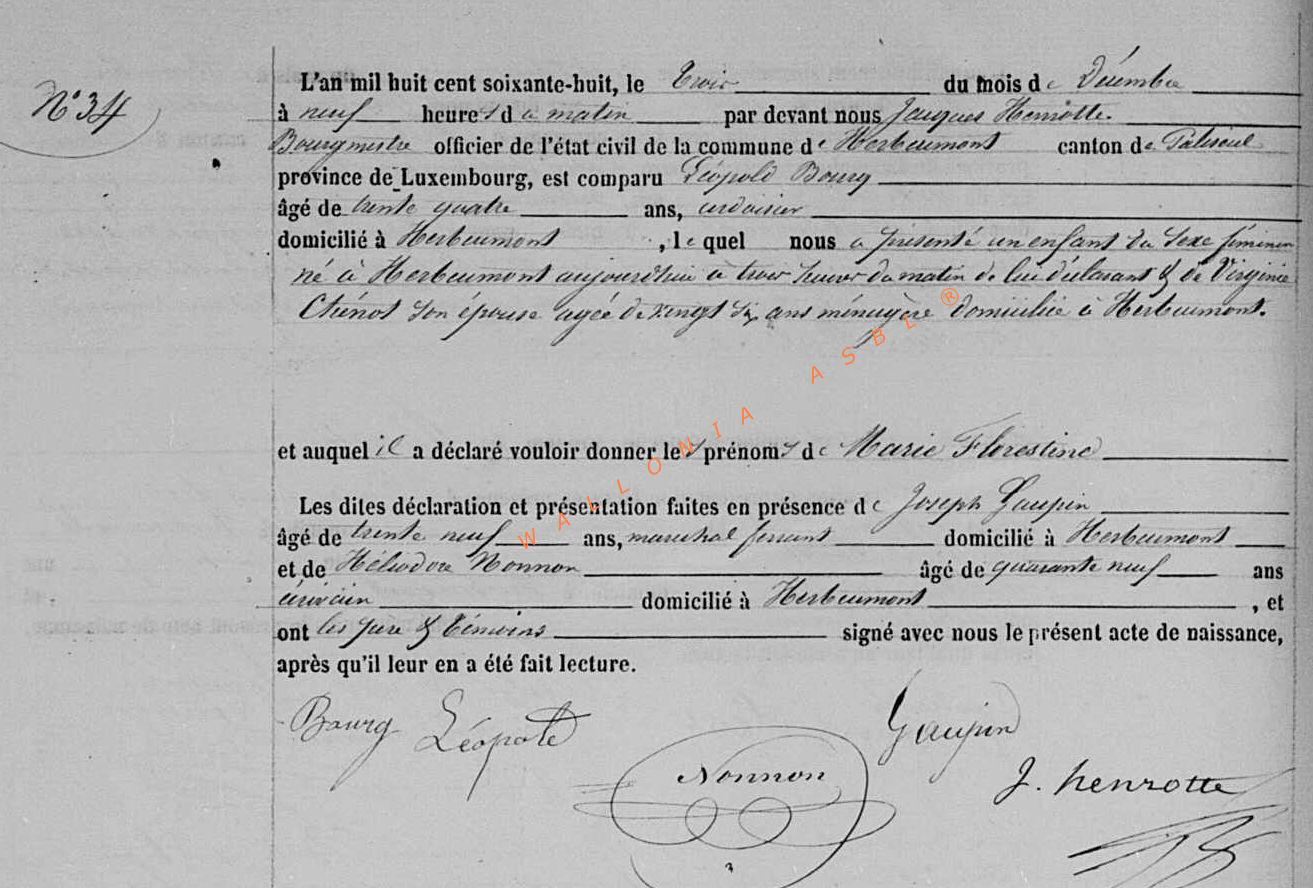 N° 34
L'an mil huit cent soixante-huit, le trois du mois de Décembre
à neuf heures du matin par devant nous Jacques Henrotte
Bourgmestre officier de l'état civil de la commune de Herbeumont canton de Paliseul
province de Luxembourg, est comparu Léopold Bourg
âgé de trente quatre ans, ardoisier
domicilié à Herbeumont, lequel nous a présenté un enfant du sexe féminin
né à Herbeumont aujourd'hui à trois heures du matin de lui déclarant & de Virginie
Chénot son épouse agée de vingt six ans ménagère domiciliée à Herbeumont.
et auquel il a déclaré vouloir donner les prénoms de Marie Florestine
Les dites déclaration et présentation faites en présence de Joseph Gaupin
âgé de trente neuf ans, maréchal ferrant domicilié à Herbeumont
et de Héliodore Nonnon âgé de quarante neuf ans
domicilié à Herbeumont, et
ont les père & témoins signé avec nous le présent acte de naissance,
après qu'il leur en a été fait lecture.
Bourg Léopold
Gaupin
Nonnon
J. henrotte
WALLONIA ASBL ®